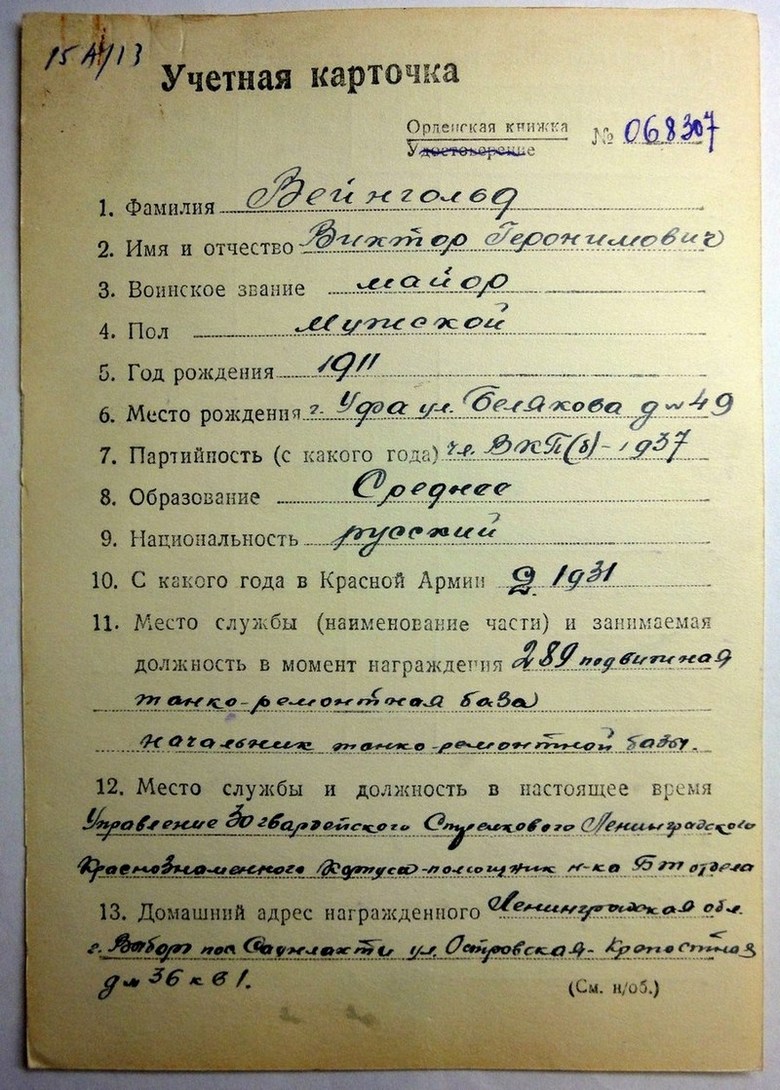 15 А/13
Учетная карточка
Орденская книжка
Удостоверение
№ 068307
1. Фамилия Вейнгольд
2. Имя и отчество Виктор Геронимович
3. Воинское звание майор
4. Пол Мужской
5. Год рождения 1911
6. Место рождения г. Уфа ул. Белякова д № 49
7. Партийность (с какого года) чл. ВКП(б) - 1937
8. Образование Среднее
9. Национальность русский
10. С какого года в Красной Армии с 1931
11. Место службы (наименование части) и занимаемая
должность в момент награждения 289 подвижная
танко-ремонтная база
начальник танко-ремонтной базы.
12. Место службы и должность в настоящее время
Управление 30 гвардейского Стрелкового Ленинградского
Краснознаменного Корпуса - помощник н-ка БТ отдела
13. Домашний адрес награжденного Ленинградская обл.
г. Выборг пос Саунлахти ул. Островская - Крепостная
д № 36 кв 1.
(См. н/об.)